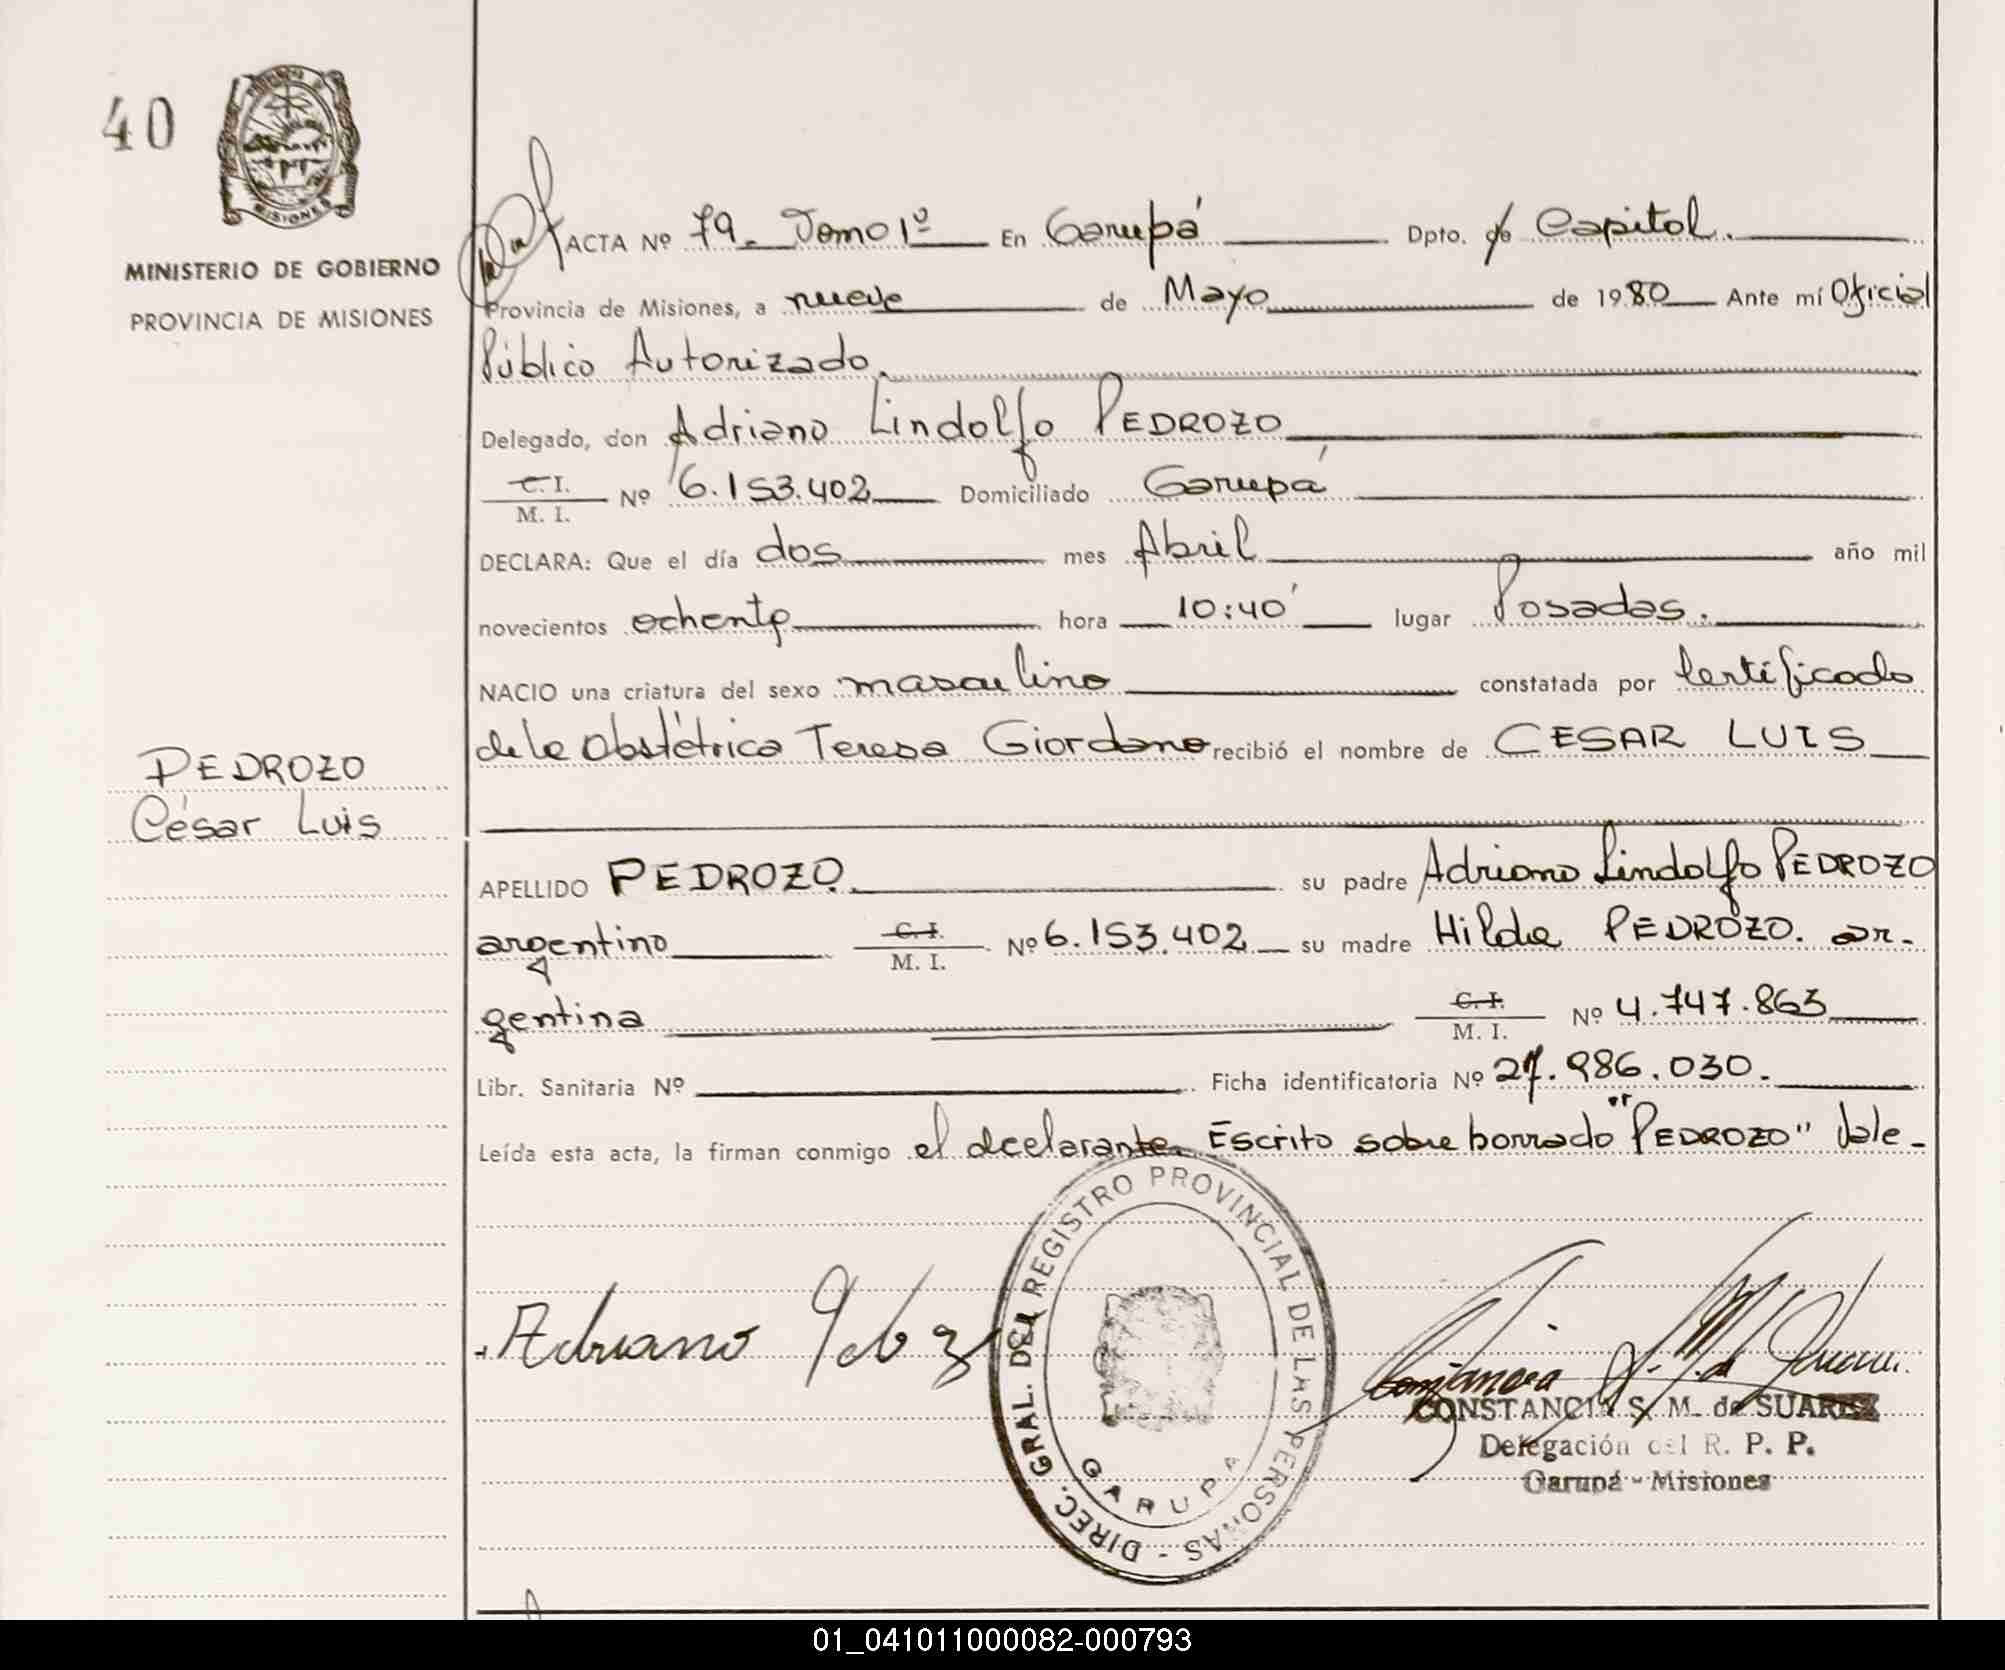 40
MISIONES
MINISTERIO DE GOBIERNO
PROVINCIA DE MISIONES
ACTA Nº 79. Tomo 1º En Garupá Dpto. de Capital.
Provincia de Misiones, a nueve de Mayo de 1980 Ante mí Oficial
Público Autorizado.
Delegado, don Adriano Lindolfo PEDROZO
C. I. / M. I. Nº 6.153.402 Domiciliado Garupá
DECLARA: Que el día dos mes Abril año mil
novecientos ochenta hora 10:40' lugar Posadas.
NACIO una criatura del sexo masculino constatada por Certificado
de la Obstétrica Teresa Giordano recibió el nombre de CESAR LUIS
PEDROZO
César Luis
APELLIDO PEDROZO. su padre Adriano Lindolfo PEDROZO
argentino C. I. / M. I. Nº 6.153.402 su madre Hilda PEDROZO. ar-
gentina C. I. / M. I. Nº 4.747.863
Libr. Sanitaria Nº Ficha identificatoria Nº 27.986.030.
Leída esta acta, la firman conmigo el declarante. Escrito sobre borrado "PEDROZO" Vale-
DIREC. GRAL. DEL REGISTRO PROVINCIAL DE LAS PERSONAS -
GARUPA
Adriano
CONSTANCIA S. M. de SUAREZ
Delegación del R. P. P.
Garupá - Misiones
01_041011000082-000793